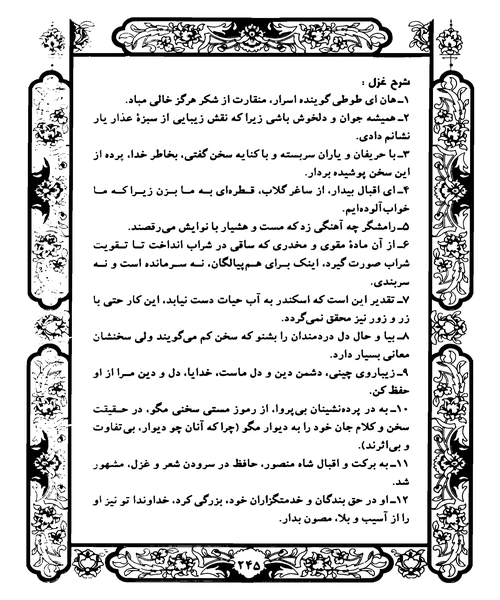 شرح غزل :
۱ـ هان ای طوطی گوینده اسرار، منقارت از شکر هرگز خالی مباد.
۲ـ همیشه جوان و دلخوش باشی زیرا که نقش زیبایی از سبزهٔ عذار یار
نشانم دادی.
۳ـ با حریفان و یاران سربسته و با کنایه سخن گفتی، بخاطر خدا، پرده از
این سخن پوشیده بردار.
۴ـ ای اقبال بیدار، از ساغر گلاب، قطره‌ای به ما بزن زیرا که ما
خواب‌آلوده‌ایم.
۵ـ رامشگر چه آهنگی زد که مست و هشیار با نوایش می‌رقصند.
۶ـ از آن مادهٔ مقوی و مخدری که ساقی در شراب انداخت تا تقویت
شراب صورت گیرد، اینک برای هم‌پیالگان، نه سر مانده است و نه
سربندی.
۷ـ تقدیر این است که اسکندر به آب حیات دست نیابد، این کار حتی با
زر و زور نیز محقق نمی‌گردد.
۸ـ بیا و حال دل دردمندان را بشنو که سخن کم می‌گویند ولی سخنشان
معانی بسیار دارد.
۹ـ زیباروی چینی، دشمن دین و دل ماست، خدایا، دل و دین مرا از او
حفظ کن.
۱۰ـ به در پرده‌نشینان بی‌پروا، از رموز مستی سخنی مگو، در حقیقت
سخن و کلام جان خود را به دیوار مگو (چرا که آنان چو دیوار، بی‌تفاوت
و بی‌اثرند).
۱۱ـ به برکت و اقبال شاه منصور، حافظ در سرودن شعر و غزل، مشهور
شد.
۱۲ـ او در حق بندگان و خدمتگزاران خود، بزرگی کرد، خداوندا تو نیز او
را از آسیب و بلا، مصون بدار.
۲۴۵